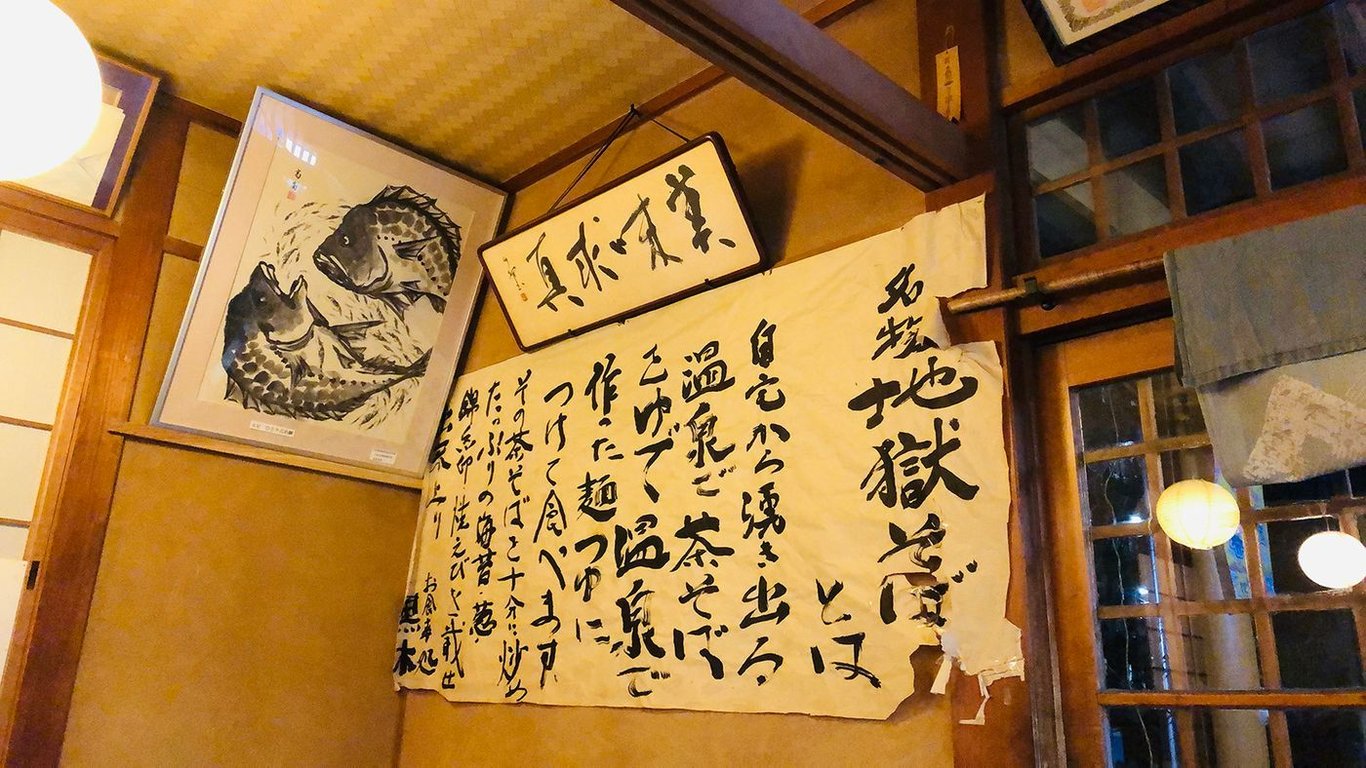 美味求真
名物地獄そば
とは
自宅から湧き出る
温泉で茶そば
をゆでて温泉で
作った麺つゆに
つけて食べます
その茶そばを十分に炒め
たっぷりの海苔・葱・
錦糸卵・焼えびを載せ
出来上り
お食事処
黒木